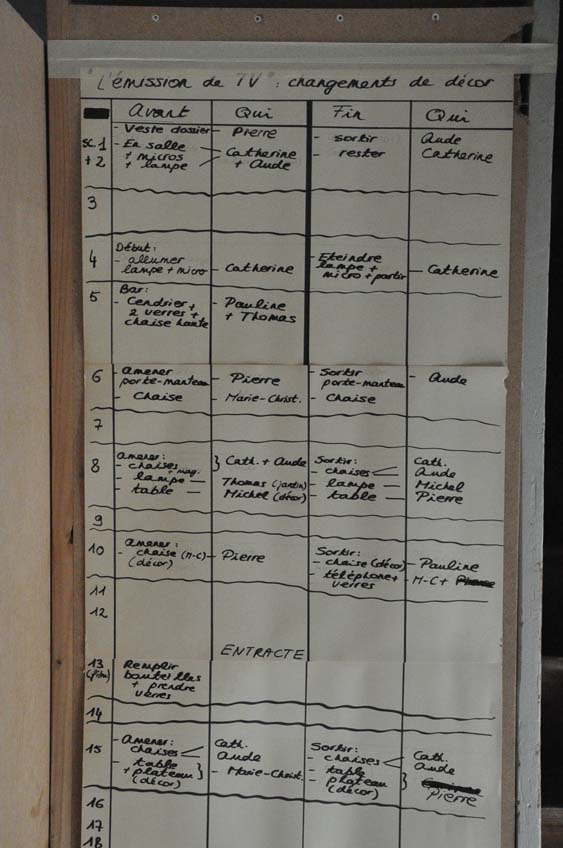 "L'émission de TV": changements de décor
Avant Qui Fin Qui
sc. 1 + 2
- Veste dossier - Pierre
- En salle
+ micros
+ lampe
Catherine
+ Aude
- sortir Aude
- rester Catherine
3
4
Début:
- allumer
lampe + micro - Catherine
- Eteindre
lampe +
micro + partir - Catherine
5
Bar:
- Cendrier +
2 verres +
chaise haute
- Pauline
+ Thomas
6
- Amener
porte-manteau - Pierre
- Chaise - Marie-Christ.
- Sortir
porte-manteau - Aude
- Chaise
7
8
Amener:
- chaises } Cath. + Aude
- lampe + mag. - Thomas (jardin)
- table - Michel (décor)
Sortir:
- chaises Cath.
Aude
- lampe - Michel
- table - Pierre
9
10
Amener:
- chaise (M-C) - Pierre
(décor)
Sortir:
- chaise (décor) - Pauline
- téléphone + - M-C +
verres
11
12
ENTRACTE
13
(film)
Remplir
bouteilles
+ prendre
verres
14
15
- Amener:
chaises Cath.
Aude
- table
+ plateau } - Marie-Christ.
(décor)
Sortir:
- chaises Cath.
Aude
- table
- plateau } Pierre
(décor)
16
17
18